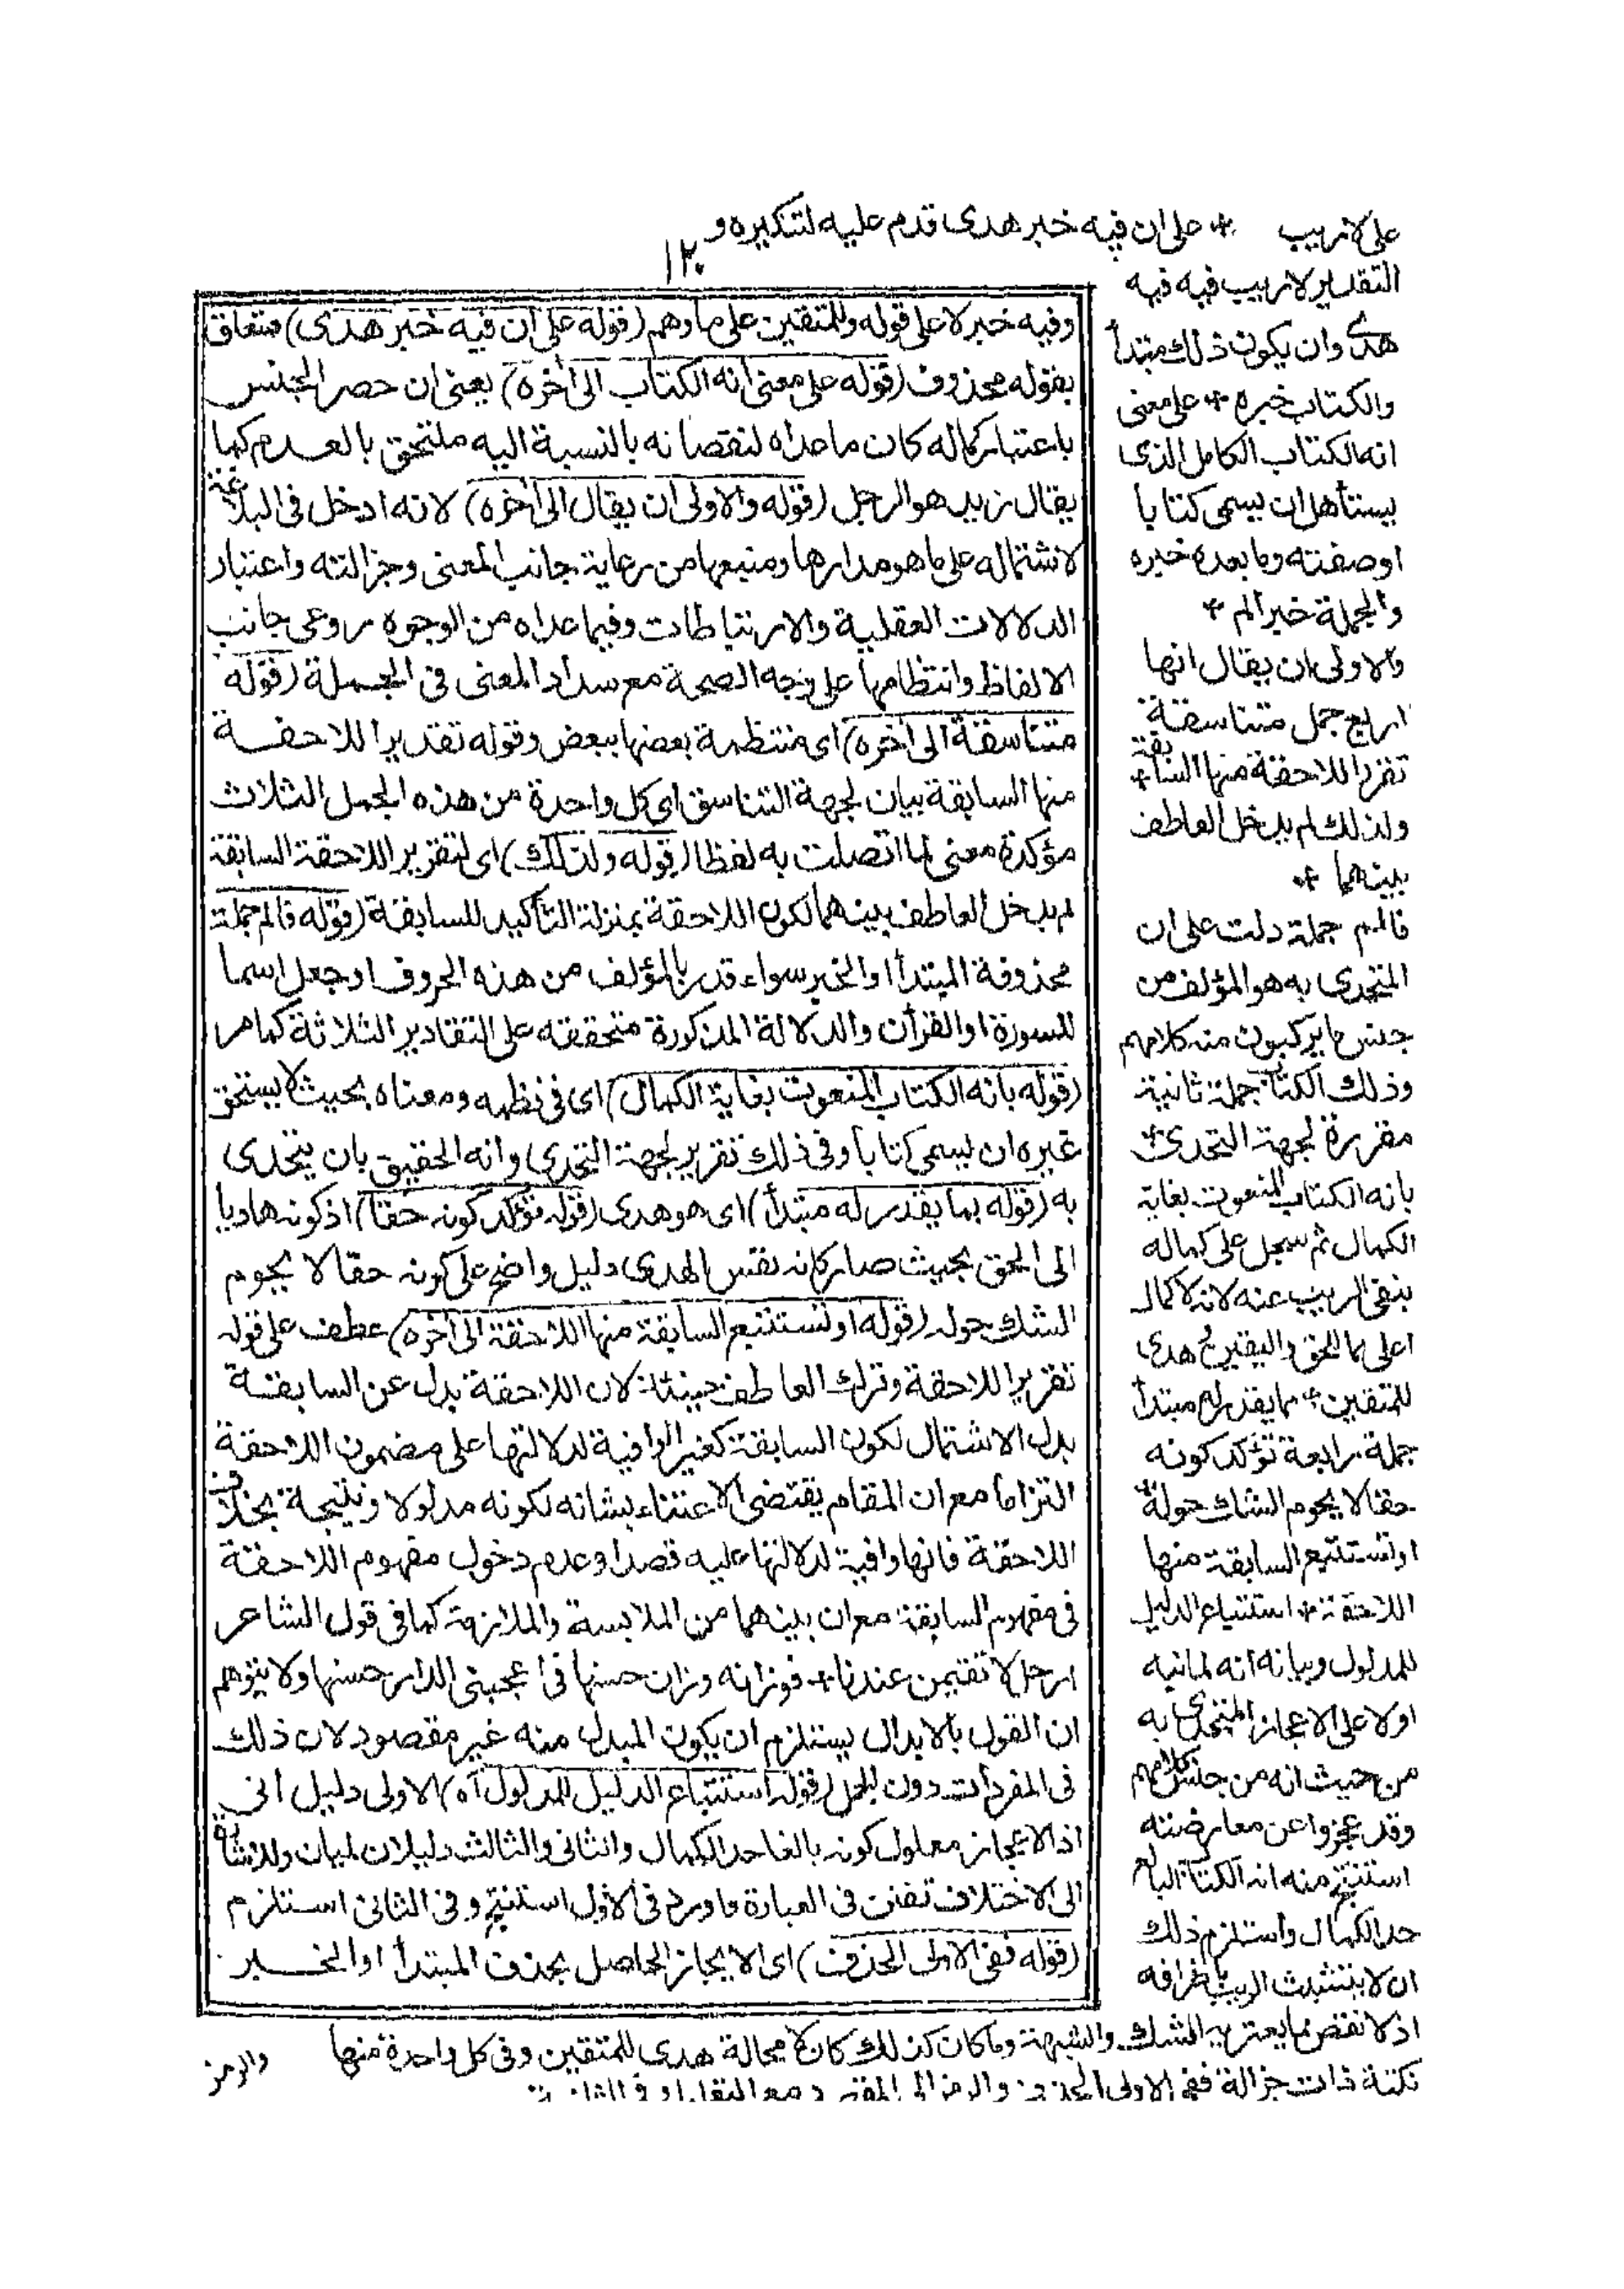 على لا ريب * على ان فيه خبر هدى قدم عليه لتنكيره و
١٢٠
التقدير لا ريب فيه فيه
هدى وان يكون ذلك مبتدأ
والكتاب خبره * على معنى
انه الكتاب الكامل الذى
يستأهل ان يسمى كتابا
اوصفته وما بعده خبره
والجملة خبر الم *
والاولى ان يقال انها
اربع جمل متناسقة
تقرر اللاحقة منها السابقة *
ولذلك لم يدخل العاطف
بينهما *
فالم جملة دلت على ان
المتحدى به هو المؤلف من
جنس ما يركبون منه كلامهم
وذلك الكتاب جملة ثانية
مقررة لجهة التحدى *
بانه الكتاب المنعوت بغاية
الكمال ثم سجل على كماله
بنفى الريب عنه لانه لا كمال
اعلى مما للحق واليقين و هدى
للمتقين * بما يقدر له مبتدأ
جملة رابعة تؤكد كونه
حقا لا يحوم الشك حوله *
او تستتبع السابقة منها
اللاحقة * استتباع الدليل
للمدلول وبيانه انه لما نبه
اولا على الاعجاز المتحدى به
من حيث انه من جنس كلامهم
وقد عجزوا عن معارضته
استنتج منه انه الكتاب البالغ
حد الكمال واستلزم ذلك
ان لا يتشبث الريب باطرافه
اذ لا نقص مما يعتريه الشك والشبهة وما كان كذلك كان لا محالة هدى للمتقين وفى كل واحدة منها
نكتة ذات جزالة ففى الاولى الحذف والرمز الى المقصود مع التعليل وفى الثانية
وفيه خبر لا على قوله وللمتقين على ما وهم (قوله على ان فيه خبر هدى) متعلق
بقوله محذوف (قوله على معنى انه الكتاب الى اخره) يعنى ان حصر الجنس
باعتبار كماله كان ما عداه لنقصانه بالنسبة اليه ملتحق بالعدم كما
يقال زيد هو الرجل (قوله والاولى ان يقال الى اخره) لانه ادخل فى البلاغة
لاشتماله على ما هو مدارها ومنبعها من رعاية جانب المعنى وجزالته واعتبار
الدلالات العقلية والارتباطات وفيما عداه من الوجوه روعى جانب
الالفاظ وانتظامها على وجه الصحة مع سداد المعنى فى الجملة (قوله
متناسقة الى اخره) اى منتظمة بعضها ببعض وقوله تقدير اللاحقة
منها السابقة بيان لجهة التناسق اى كل واحدة من هذه الجمل الثلاث
مؤكدة معنى لما اتصلت به لفظا (قوله ولذلك) اى لتقرير اللاحقة السابقة
لم يدخل العاطف بينهما لكون اللاحقة بمنزلة التأكيد للسابقة (قوله فالم جملة
محذوفة المبتدأ او الخبر سواء قدر بالمؤلف من هذه الحروف او جعل اسما
للسورة او القرأن والدلالة المذكورة متحققه على التقادير الثلاثة كما مر
(قوله بانه الكتاب المنعوت بغاية الكمال) اى فى نظمه ومعناه بحيث لا يستحق
غيره ان يسمى كتابا وفى ذلك تقرير لجهة التحدى وانه الحقيق بان يتحدى
به (قوله بما يقدر له مبتدأ) اى هو هدى (قوله تؤكد كونه حقا) اذ كونه هاديا
الى الحق بحيث صار كانه نفس الهدى دليل واضح على كونه حقا لا يحوم
الشك حوله (قوله او تستتبع السابقة منها اللاحقة الى اخره) عطف على قوله
تقرير اللاحقة وترك العاطف حينئذ لان اللاحقة بدل عن السابقة
بدل الاشتمال لكون السابقة كغير الوافية لدلالتها على مضمون اللاحقة
التزاما مع ان المقام يقتضى الاعتناء بشانه لكونه مدلولا ونتيجة بخلاف
اللاحقة فانها وافية لدلالتها عليه قصدا وعدم دخول مفهوم اللاحقة
فى مفهوم السابقة مع ان بينهما من الملابسة والملازمة كما فى قول الشاعر
ارحل لا تقيمن عندنا * فوزانه وزان حسنها فى اعجبنى الدار حسنها ولا يتوهم
ان القول بالابدال يستلزم ان يكون المبدل منه غير مقصود لان ذلك
فى المفردات دون الجمل (قوله استتباع الدليل للمدلول اه) الاولى دليل انى
اذ الاعجاز معلول كونه بالغا حد الكمال والثانى والثالث دليلان لميان وللاشارة
الى الاختلاف تفنن فى العبارة فاورد فى الاول استنتج وفى الثانى استلزم
(قوله ففى الاولى الحذف) اى الايجاز الحاصل بحذف المبتدأ او الخبر
والرمز